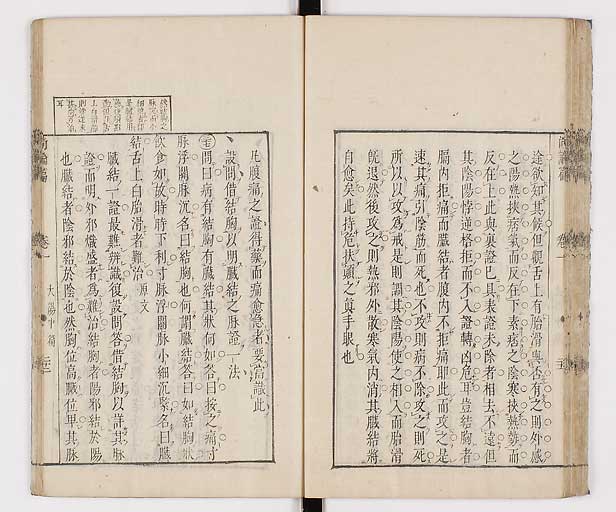 途欲知其候但觀舌上有胎滑與否有之則外感
之陽熱挾痰氣而反在下素痞之陰寒挾熱勢而
反在上此與裏證已具表證未除者相去不遠但
其陰陽悖逆格拒而不入證轉凶危耳豈結胸者
膈內拒痛而臟結者腹內不拒痛耶此而攻之是
速其痛引陰筋而死也不攻則病不除攻之則死
所以以攻為戒是則調其陰陽使之相入而胎滑
既退然後攻之則熱邪外散寒氣內消其臟結將
自愈矣此持危扶顛之真手眼也
凡腹痛之證得藥而痛愈急者要當識此
設問借結胸以明臟結之脉證一法
問曰病有結胸有臟結其狀何如答曰按之痛寸
脉浮關脉沉名曰結胸也何謂臟結答曰如結胸狀
飲食如故時時下利寸脉浮關脉小細沉緊名曰臟
結舌上白胎滑者難治 原文
臟結一證最難辨識復設問答借結胸以詳其脉
證而明外邪熾盛者為難治結胸者陽邪結於陽
也臟結者陰邪結於陰也然胸位高臟位卑其脉
卷一
太陽中篇